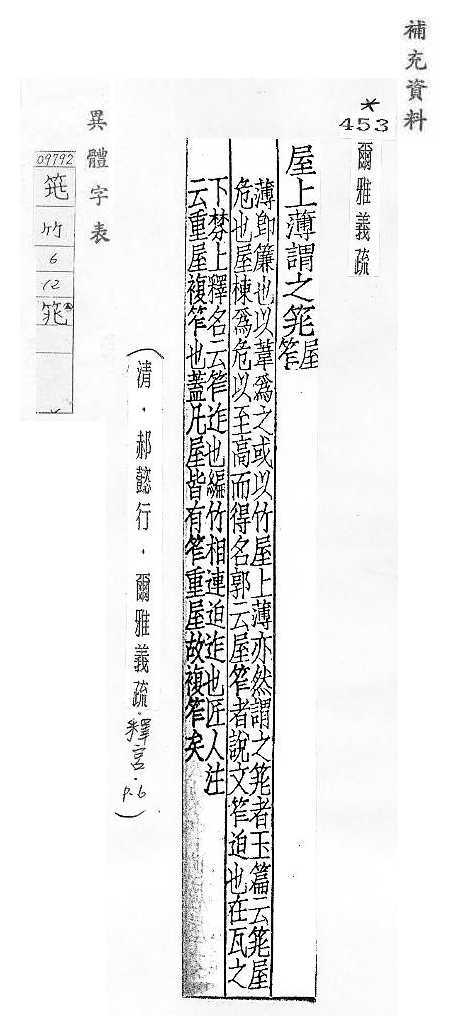 補充資料
*
453
爾雅義疏
屋上薄謂之筄屋
笮
薄卽簾也以葦爲之或以竹屋上薄亦然謂之筄者玉篇云筄屋
危也屋棟爲危以至高而得名郭云屋笮者說文笮迫也在瓦之
下棼上釋名云笮迮也編竹相連迫迮也匠人注
云重屋複笮也蓋凡屋皆有笮重屋故複笮矣
(清．郝懿行．爾雅義疏．釋宮．P.6)
異體字表
09792
竹
6
12
筄